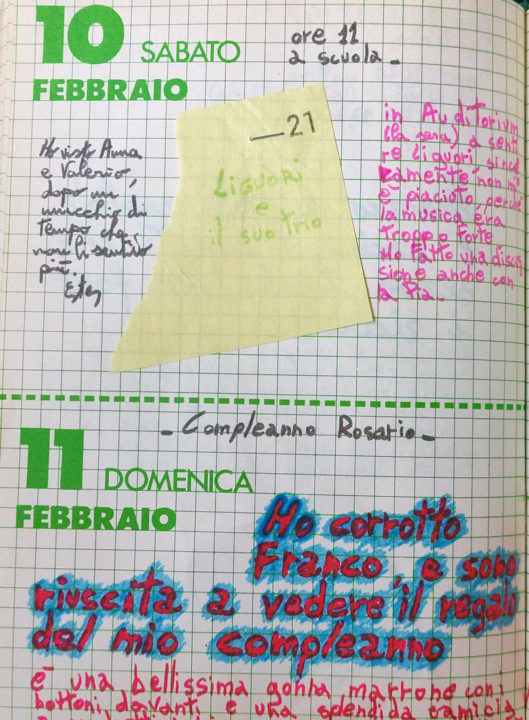 10 SABATO
FEBBRAIO
ore 11
a scuola -
Ho visto Anna
e Valerio,
dopo un
mucchio di
tempo che
non li sentivo
più.
— 21
Liguori
e
il suo trio
in Auditorium
(la sera) a senti
re Liguori, since
ramente non mi
è piaciuto, perché
la musica era
troppo forte
Ho fatto una discus
sione anche con
la Pia.
11 DOMENICA
FEBBRAIO
- Compleanno Rosario -
Ho corrotto
Franco, e sono
riuscita a vedere il regalo
del mio compleanno
è una bellissima gonna marrone con i
bottoni davanti e una splendida camicia